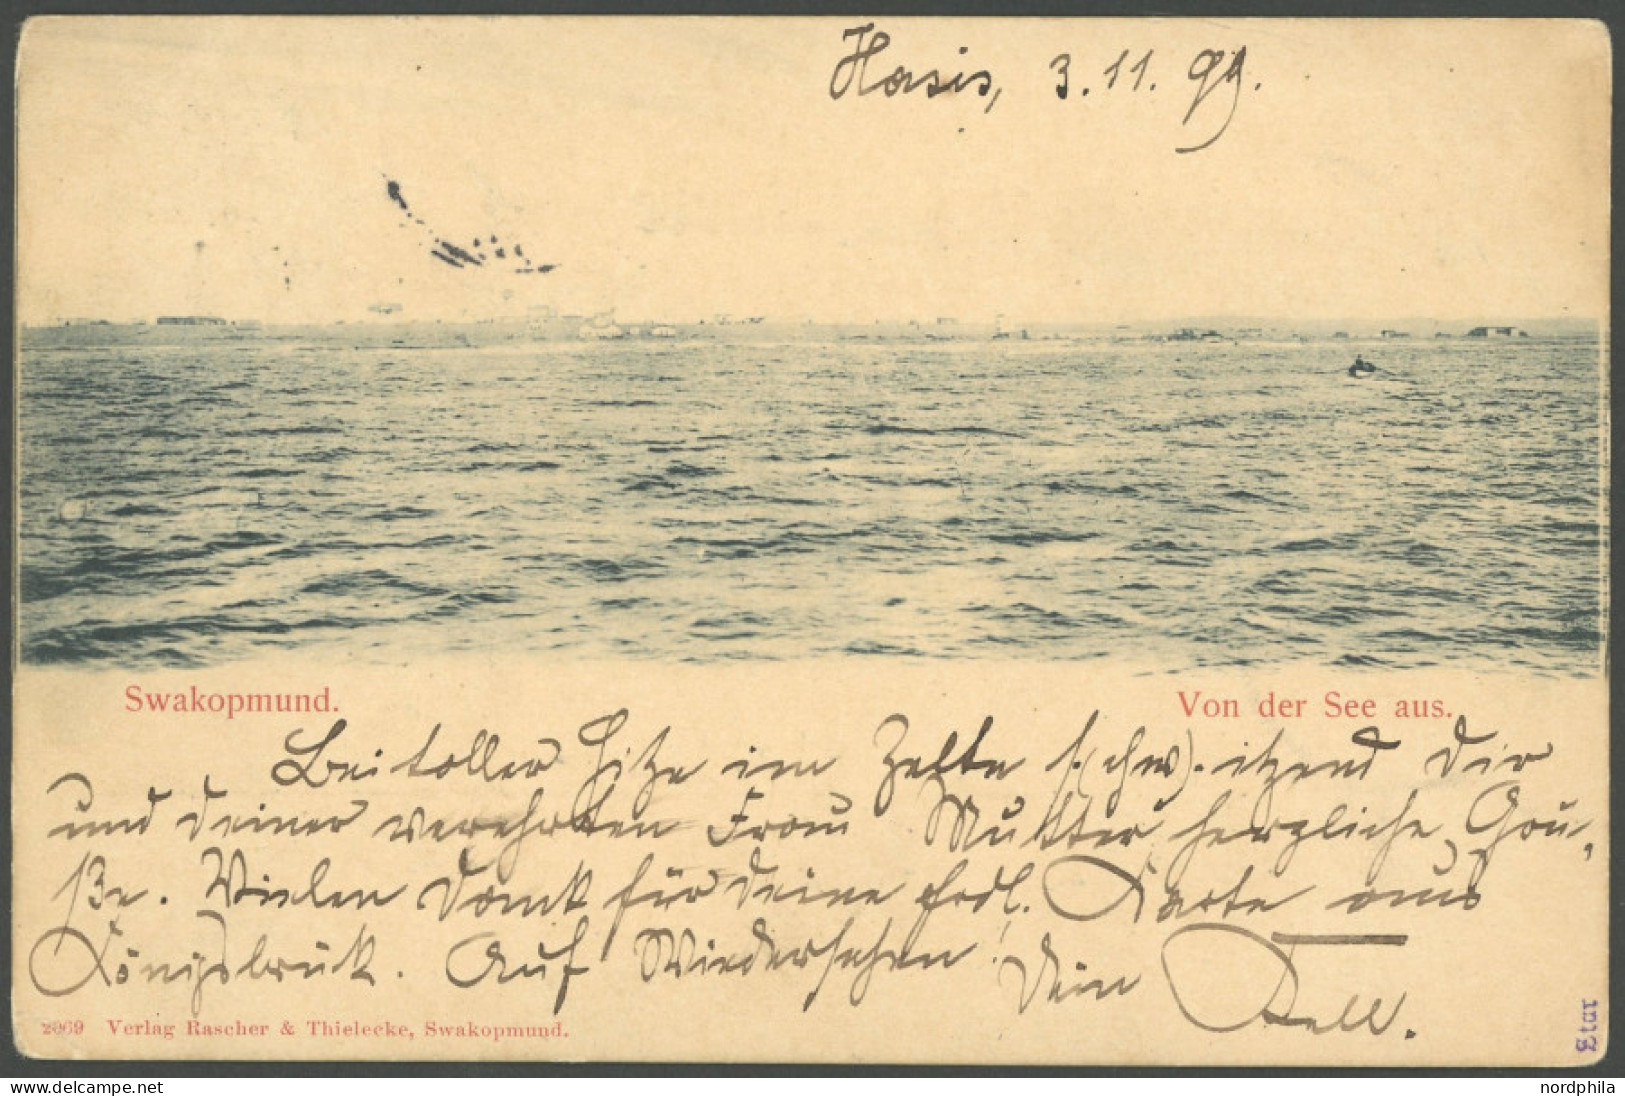 Hasis, 3.11.99.
Swakopmund. Von der See aus.
Bei toller Hitze im Zelte s.(chw).itzend Dir
und deiner verehrten Frau Mutter herzliche Grü-
ße. Vielen Dank für deine frdl. Karte aus
Königsbrück. Auf Wiedersehen! Dein
2969 Verlag Rascher & Thielecke, Swakopmund.
nordphila